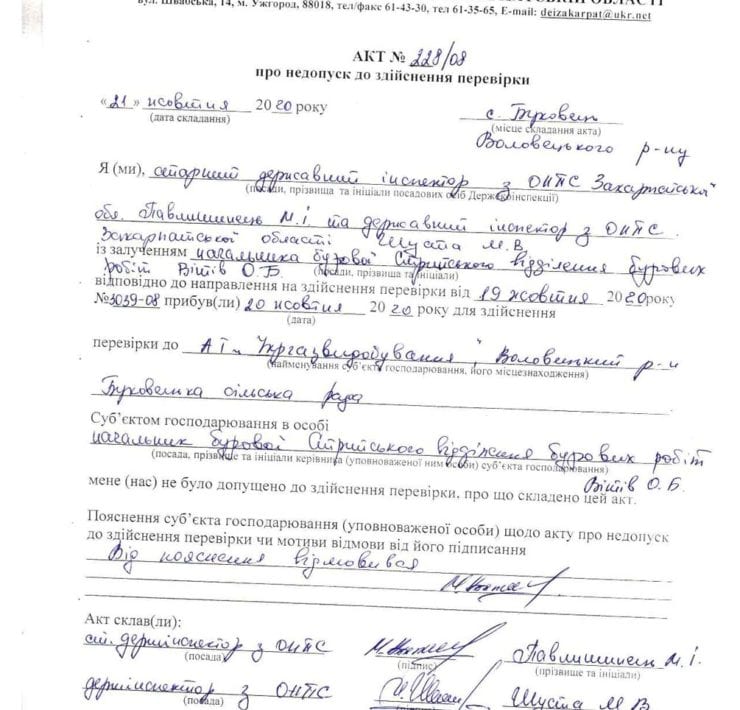 ОБЛАСТІ
вул. Швабська, 14, м. Ужгород, 88018, тел/факс 61-43-30, тел 61-35-65, E-mail: deizakarpat@ukr.net
АКТ № 228/08
про недопуск до здійснення перевірки
«21» жовтня 2020 року
(дата складання)
с. Буковець
(місце складання акта)
Воловецького р-ну
Я (ми), старший державний інспектор з ОНПС Закарпатської
(посади, прізвища та ініціали посадових осіб Держекоінспекції)
обл. Павлишинець М.І. та державний інспектор з ОНПС
Закарпатської області Шуста М.В.
із залученням начальника бурової Стрийського відділення бурових
робіт Вітів О.Б. (посади, прізвища та ініціали)
відповідно до направлення на здійснення перевірки від 19 жовтня 2020 року
№3039-08 прибув(ли) 20 жовтня 2020 року для здійснення
(дата)
перевірки до АТ „Укргазвиробування", Воловецький р-н
(найменування суб'єкта господарювання, його місцезнаходження)
Буковецька сільська рада
Суб'єктом господарювання в особі
начальник бурової Стрийського відділення бурових робіт
(посада, прізвище та ініціали керівника (уповноваженої ним особи) суб'єкта господарювання)
Вітів О.Б.
мене (нас) не було допущено до здійснення перевірки, про що складено цей акт.
Пояснення суб'єкта господарювання (уповноваженої особи) щодо акту про недопуск
до здійснення перевірки чи мотиви відмови від його підписання
Від пояснення відмовився
Акт склав(ли):
ст. держінспектор з ОНПС Павлишинець М.І.
(посада) (підпис) (прізвище та ініціали)
держінспектор з ОНПС Шуста М В
(посада)